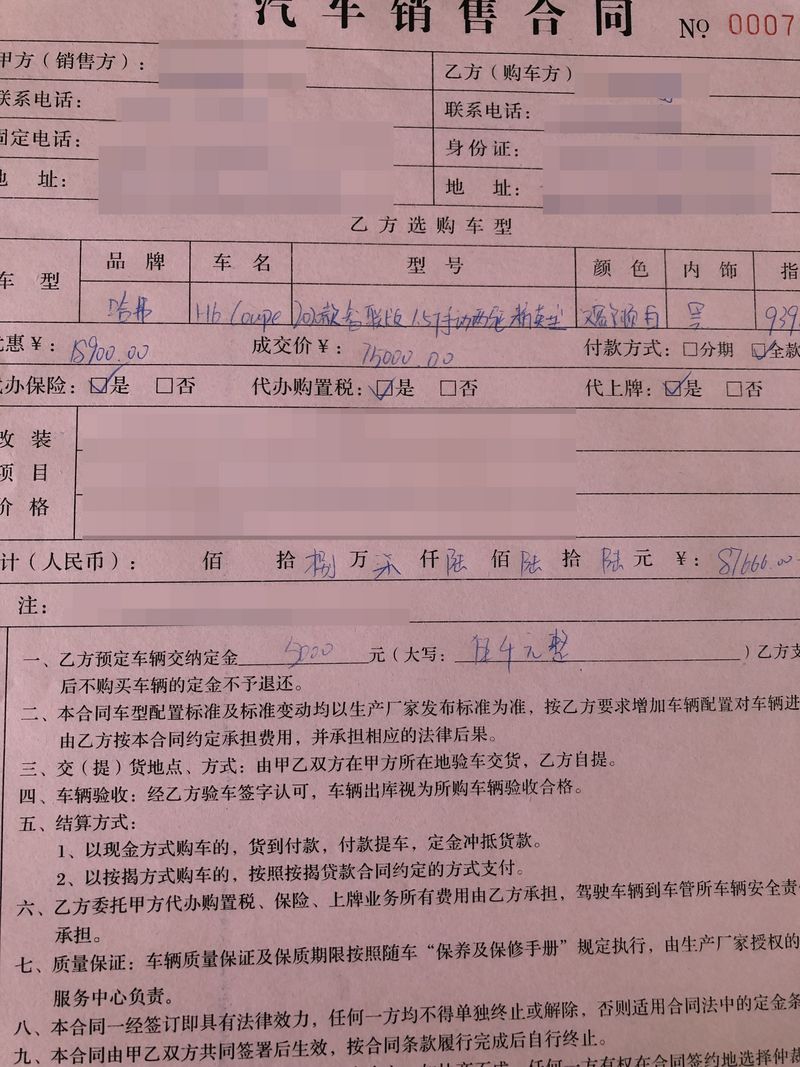 汽车销售合同 №0007
甲方（销售方）：
乙方（购车方）
联系电话：
联系电话：
固定电话：
身份证：
地 址：
地 址：
乙方选购车型
车 型 品 牌 车 名 型 号 颜 色 内 饰 指
哈弗 H6 Coupe 1.5T手动两驱 黑 939
惠￥：15900.00 成交价￥：75000.00 付款方式：□分期 ☑全款
代办保险：☑是 □否 代办购置税：☑是 □否 代上牌：☑是 □否
改 装
项 目
价 格
计（人民币）： 佰 拾 捌万柒仟陆佰陆拾陆元 ￥：87666.00
注：
一、乙方预定车辆交纳定金5000元（大写：伍仟元整）乙方支
后不购买车辆的定金不予退还。
二、本合同车型配置标准及标准变动均以生产厂家发布标准为准，按乙方要求增加车辆配置对车辆进
由乙方按本合同约定承担费用，并承担相应的法律后果。
三、交（提）货地点、方式：由甲乙双方在甲方所在地验车交货，乙方自提。
四、车辆验收：经乙方验车签字认可，车辆出库视为所购车辆验收合格。
五、结算方式：
1、以现金方式购车的，货到付款，付款提车，定金冲抵货款。
2、以按揭方式购车的，按照按揭贷款合同约定的方式支付。
六、乙方委托甲方代办购置税、保险、上牌业务所有费用由乙方承担，驾驶车辆到车管所车辆安全责
承担。
七、质量保证：车辆质量保证及保质期限按照随车“保养及保修手册”规定执行，由生产厂家授权的
服务中心负责。
八、本合同一经签订即具有法律效力，任何一方均不得单独终止或解除，否则适用合同法中的定金条
九、本合同由甲乙双方共同签署后生效，按合同条款履行完成后自行终止。
任何一方有权在合同签约地选择仲裁